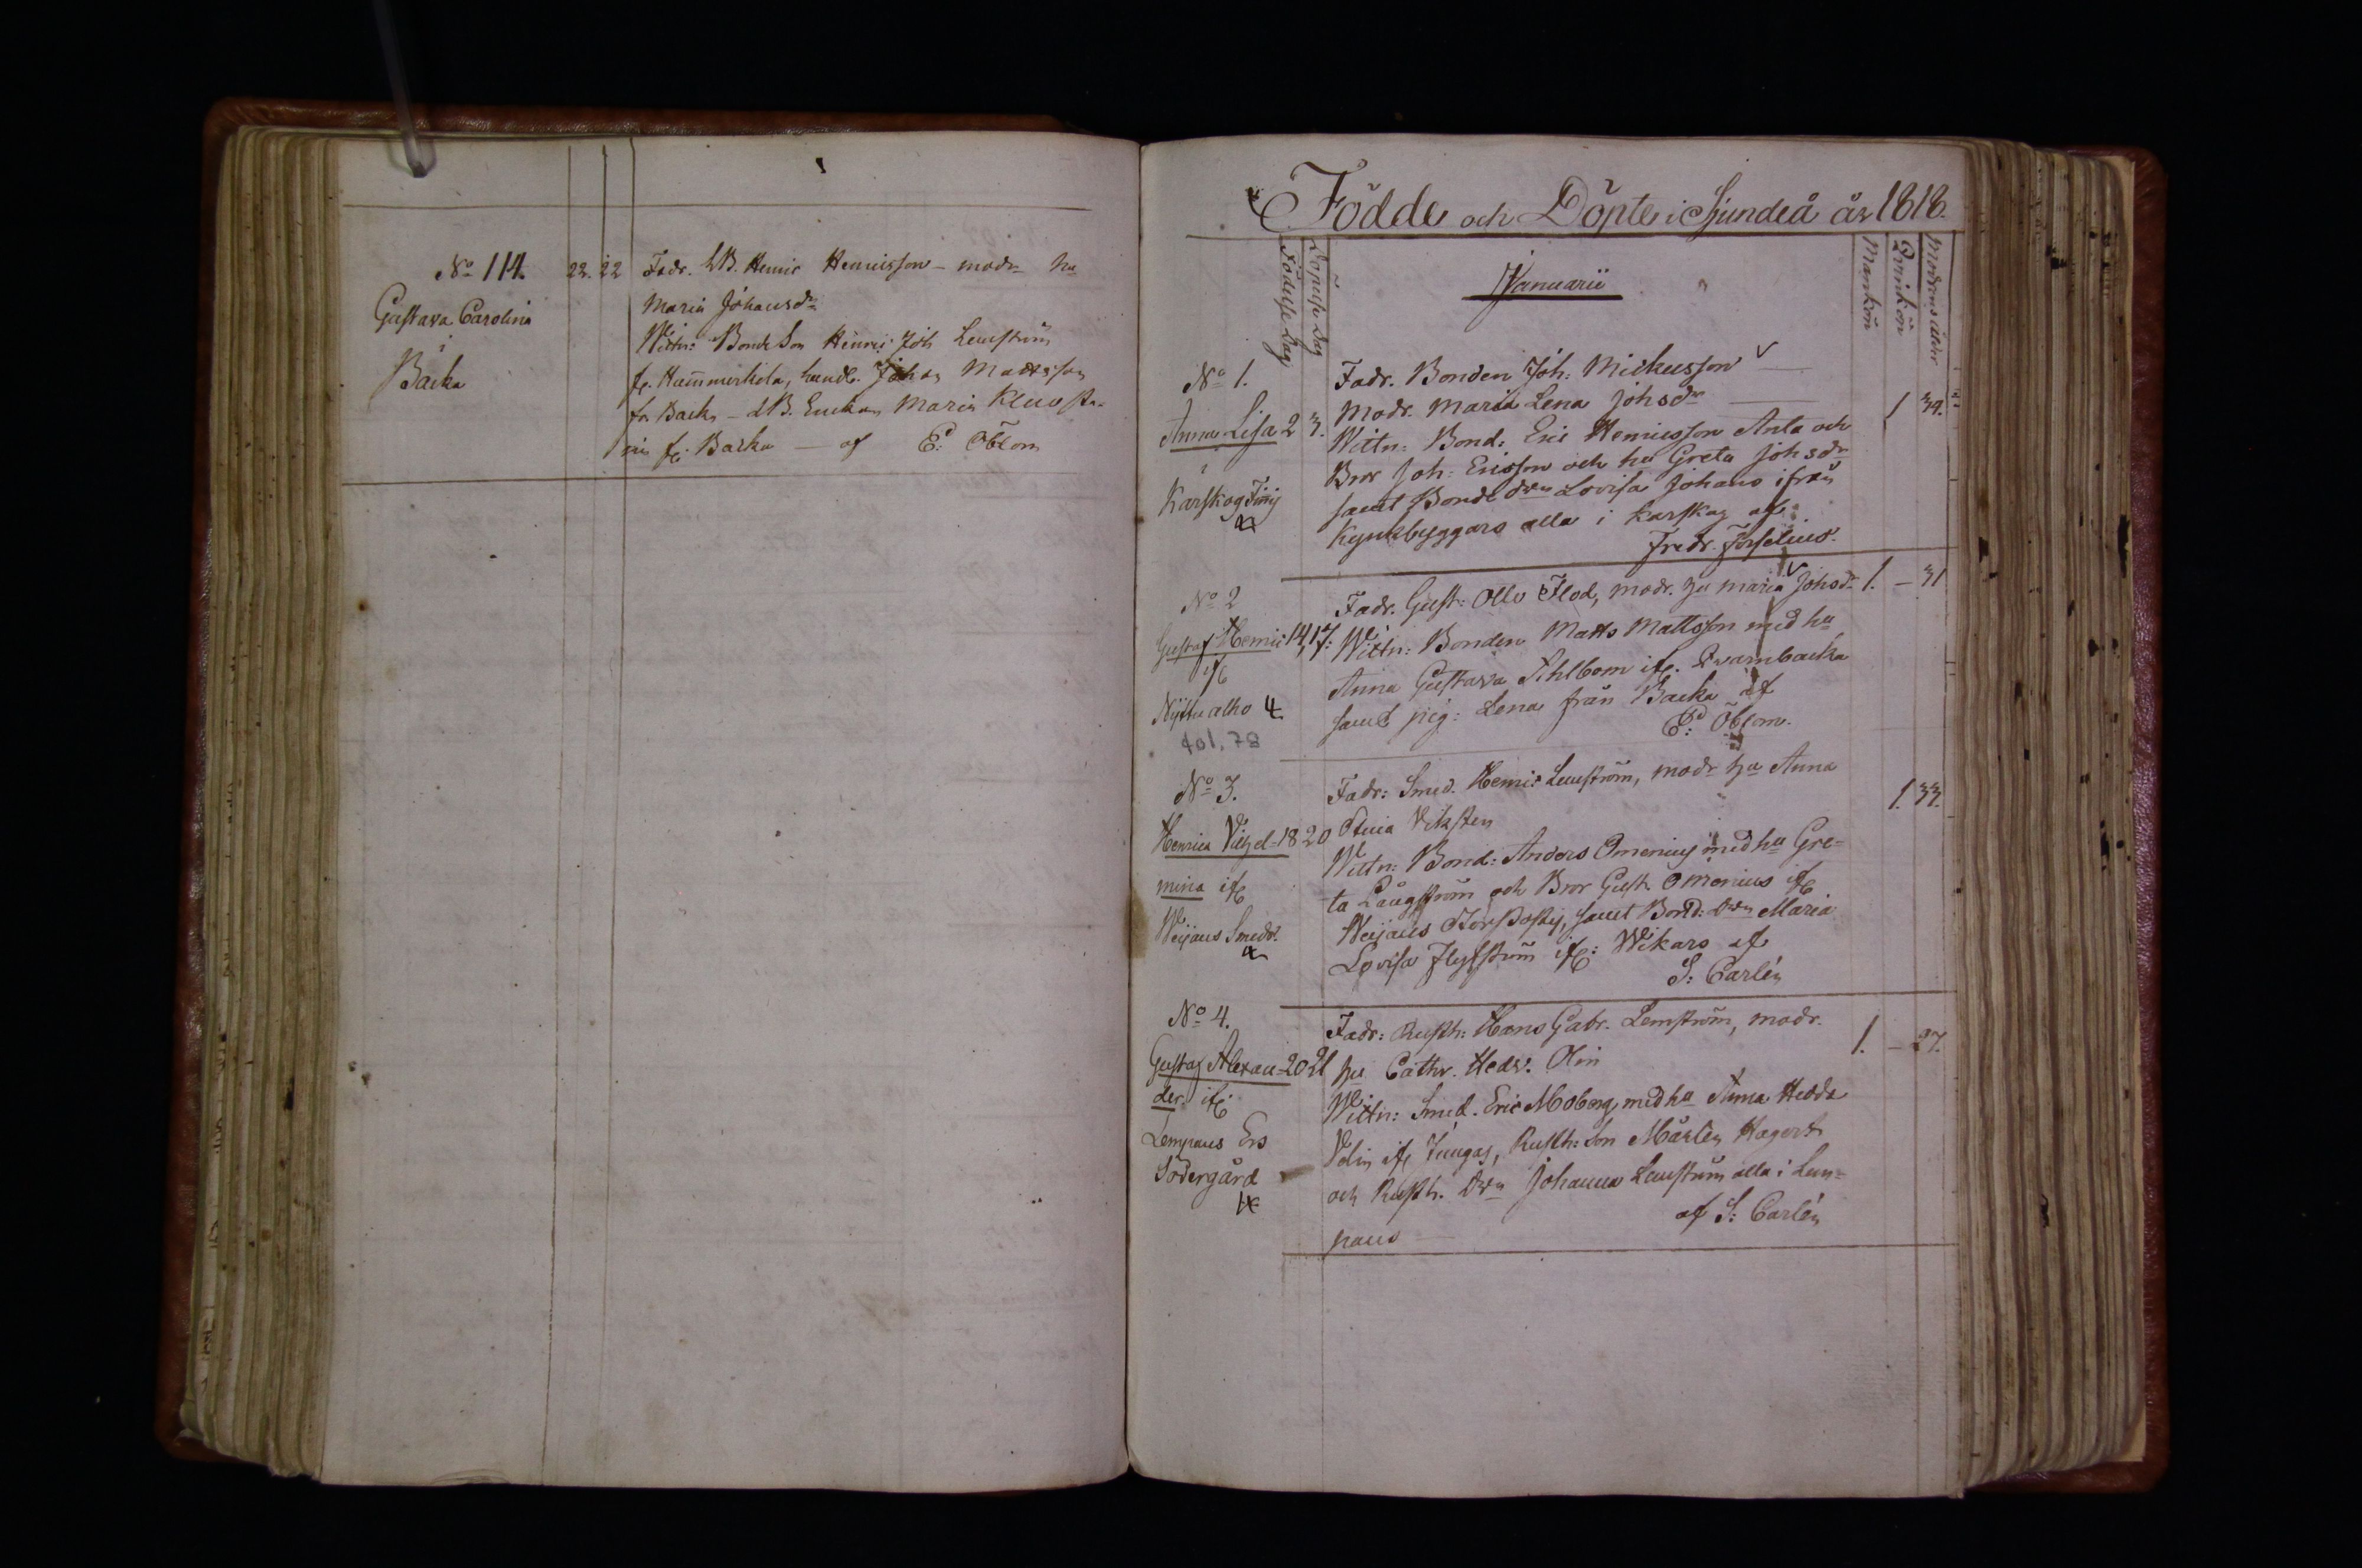 No 114.
22. 22
Fadr. LB. Henric Henricsson - modr hu
Gustava Carolina
Maria Johansdr
Wittn: Bonde Son Henric Joh Lemström
Backa
fr. Hummerkila, handl. Johan Mattsson
fr Backa - LB. Enkan Maria
fr. Backa - af E: Öblom
Födde och Döpte i Sjundeå år 1818.
Födelse Dag
Döpelse Dag
Januarii
Mankön
Qvinkön
Modrens ålder
No 1.
Fadr. Bonden Joh: Mickusson
Modr. Maria Lena Johsdr
Anna Lisa 2 3.
1 34.
Wittn: Bond: Eric Henricsson Anta och
Bror Joh: Ericsson och hu Greta Johsdr
Karskog
samt Bonde Drn Lovisa Johans ifrån
Kynkbyggars alla i Karskog af
Fredr. Forselius.
No 2
Fadr. Gust: Ollo Flod, modr. hu Maria Johsdr 1. - 31
Gustaf Henric 14 17.
Wittn: Bonden Matts Mattsson med hu
if
Anna Gustava Ahlbom ifr. Qvarnbacka
Nyttu alho 4
samt pig: Lena från Backa af
fol. 78
E: Öblom.
No 3.
Fadr: Smed. Henric Lemström, modr hu Anna
1. 33.
Henrica Vilhel= 18 20
Stina Viksten
mina ifr
Wittn: Bond: Anders Omenius med hu Gre=
ta Långström och Bror Gust. Omenius ifr
Weijans Smeds.
Weijans samt Bond: Drn Maria
Lovisa Flyfström ifr: Wikars af
S: Carlén
No 4.
Fadr: Rusth: Hans Gabr. Lemström, modr.
1. - 27.
Gustaf Alexan= 20 21
hu Cathr. Hedv. Olin
der. ifr
Wittn: Smed. Eric Moberg med hu Anna Hedda
Lempans Ers
Volin ifr Jungas, Rusth: Son Mårten Hagert
Södergård
och Rusth. Drn Johanna Lemström alla i Lem=
pans
af S: Carlén